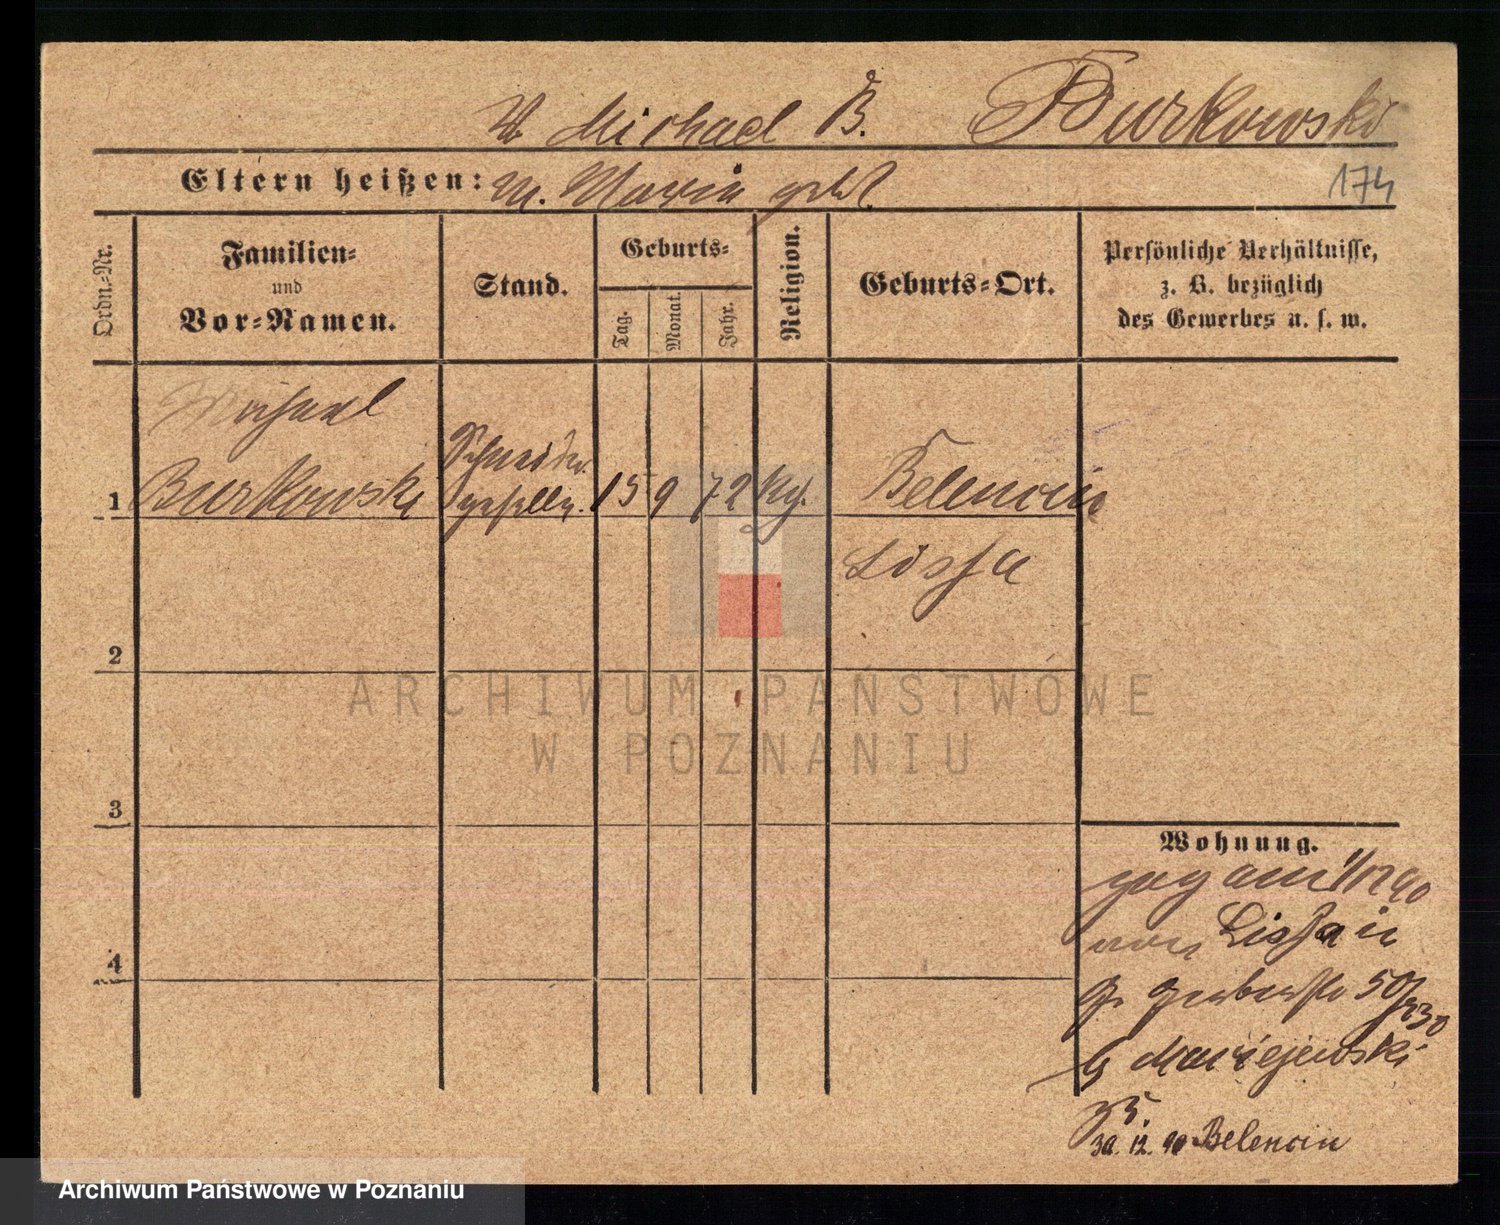 V. Michael B. Burkowski
Eltern heißen: M. Maria geb.
174
Ordn.-Nr.
Familien-
und
Vor-Namen.
Stand.
Geburts-
Tag.
Monat.
Jahr.
Religion.
Geburts-Ort.
Persönliche Verhältnisse,
z. B. bezüglich
des Gewerbes u. s. w.
Michael
Schneider
1 Burkowski geselle 15 9 72 Belencin
Lissa
2
3
4
ARCHIWUM PAŃSTWOWE
W POZNANIU
Wohnung.
am 1/12 90
von Lissa in
50
b Maciejewski
30. 12. 90 Belencin
Archiwum Państwowe w Poznaniu